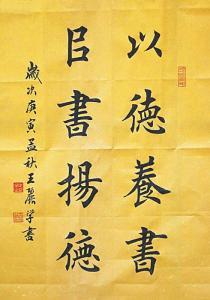 以德養書
㠯書揚德
歲次庚寅孟秋王麗学書